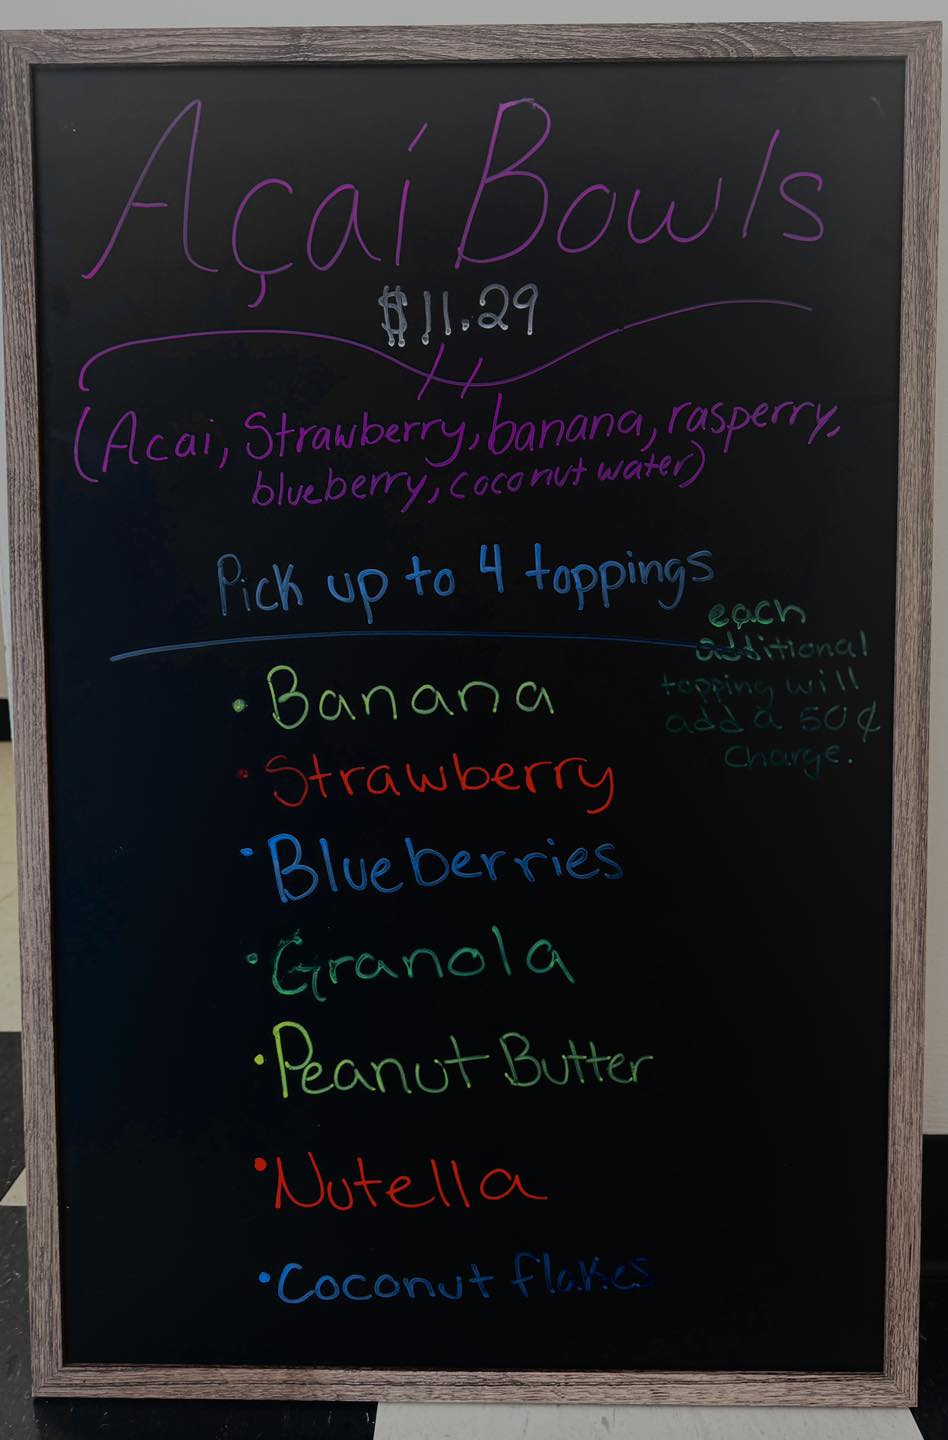 Açaí Bowls
$11.29
(Acai, Strawberry, banana, rasperry,
blueberry, coconut water)
Pick up to 4 toppings
each
additional
topping will
add a 50¢
charge.
• Banana
• Strawberry
• Blueberries
• Granola
• Peanut Butter
• Nutella
• Coconut flakes